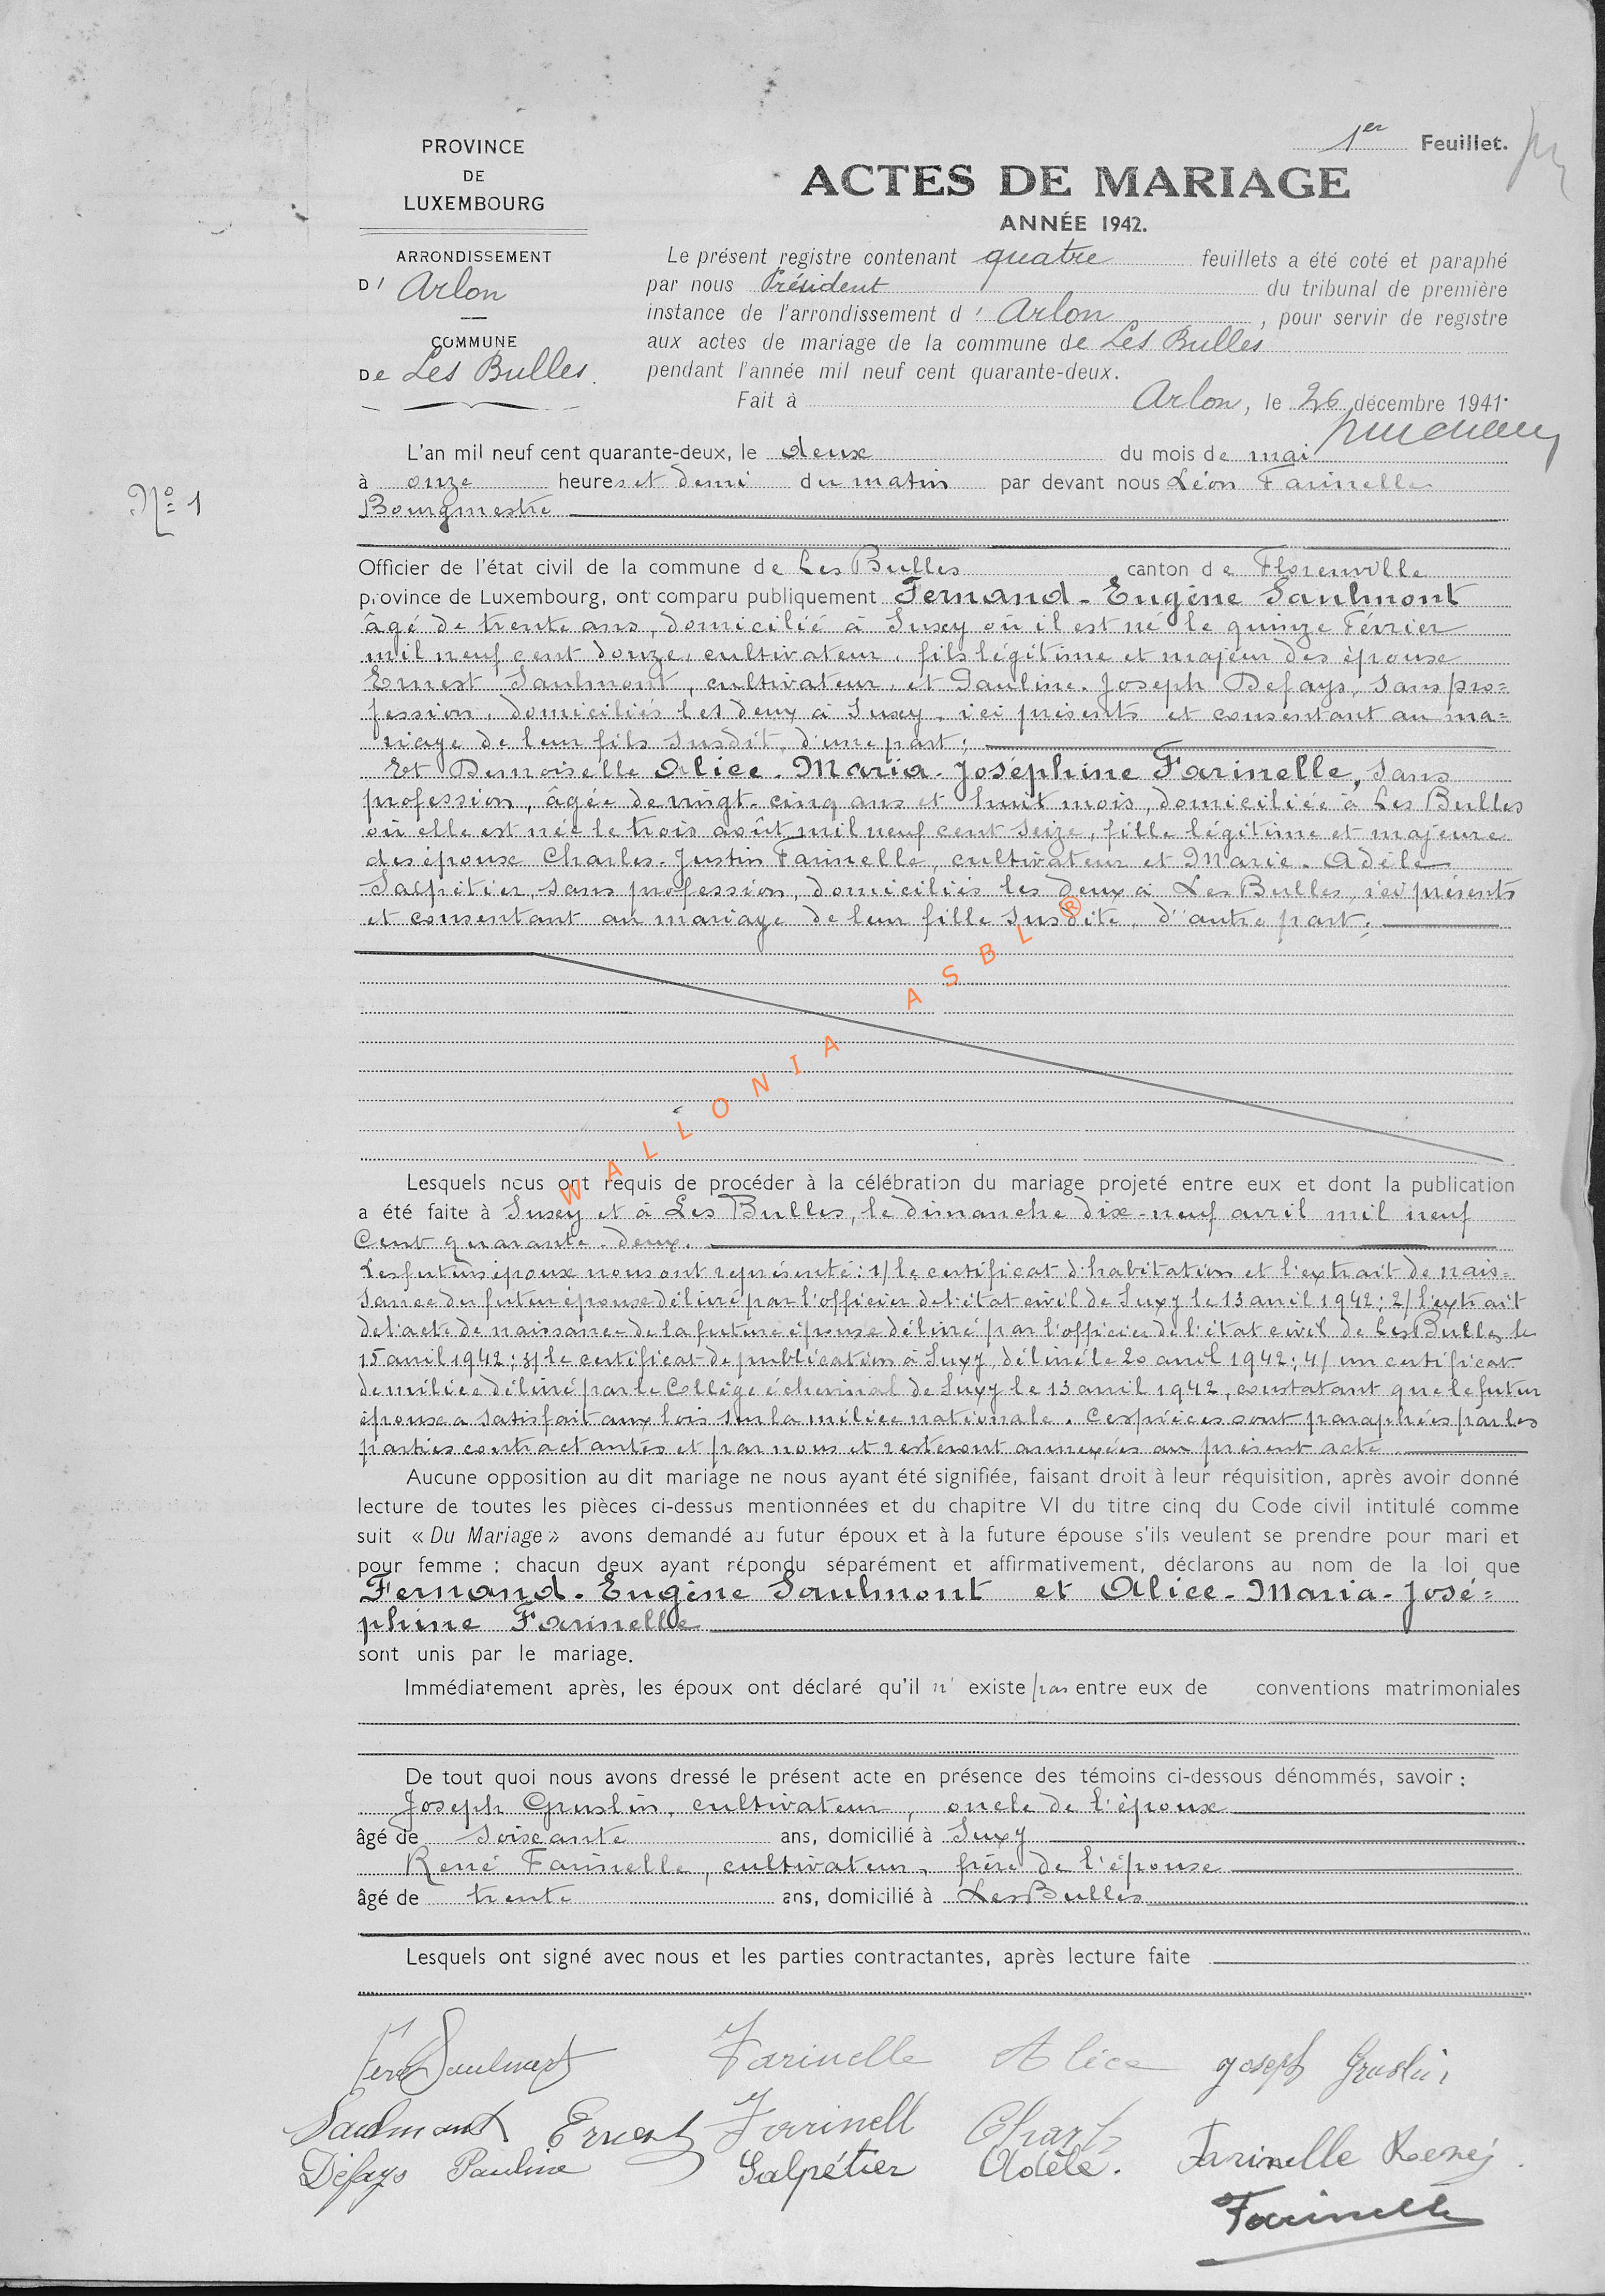 PROVINCE
DE
LUXEMBOURG
1er Feuillet.
ACTES DE MARIAGE
ANNÉE 1942.
ARRONDISSEMENT
D' Arlon
COMMUNE
De Les Bulles.
Le présent registre contenant quatre feuillets a été coté et paraphé
par nous Président du tribunal de première
instance de l'arrondissement d' Arlon, pour servir de registre
aux actes de mariage de la commune de Les Bulles
pendant l'année mil neuf cent quarante-deux.
Fait à Arlon, le 26 décembre 1941.
L'an mil neuf cent quarante-deux, le deux du mois de mai
Nº 1
à onze heures et demi du matin par devant nous Léon Farinelle
Bourgmestre
Officier de l'état civil de la commune de Les Bulles canton de Florenville
province de Luxembourg, ont comparu publiquement Fernand-Eugène Saulmont
âgé de trente ans, domicilié à Suxy où il est né le quinze Février
mil neuf cent douze, cultivateur, fils légitime et majeur des époux
Ernest Saulmont, cultivateur, et Pauline-Joseph Defays, sans pro=
fession, domiciliés les deux à Suxy, ici présents et consentant au ma=
riage de leur fils susdit, d'une part;
Et Demoiselle Alice-Maria-Joséphine Farinelle, sans
profession, âgée de vingt-cinq ans et huit mois, domiciliée à Les Bulles
où elle est née le trois août mil neuf cent seize, fille légitime et majeure
des époux Charles-Justin Farinelle, cultivateur et Marie-Adèle
Salpétier, sans profession, domiciliés les deux à Les Bulles, ici présents
et consentant au mariage de leur fille susdite, d'autre part;
WALLONIA ASBL ®
Lesquels nous ont requis de procéder à la célébration du mariage projeté entre eux et dont la publication
a été faite à Suxy et à Les Bulles, le dimanche dix-neuf avril mil neuf
Cent quarante-deux.
Les futurs époux nous ont représenté: 1/ le certificat d'habitation et l'extrait de nais=
sance du futur époux délivré par l'officier de l'état civil de Suxy le 13 avril 1942; 2/ l'extrait
de l'acte de naissance de la future épouse délivré par l'officier de l'état civil de Les Bulles le
15 avril 1942; 3/ le certificat de publication à Suxy, délivré le 20 avril 1942; 4/ un certificat
de milice délivré par le Collège échevinal de Suxy le 13 avril 1942, constatant que le futur
époux a satisfait aux lois sur la milice nationale. Ces pièces sont paraphées par les
parties contractantes et par nous et resteront annexées au présent acte.
Aucune opposition au dit mariage ne nous ayant été signifiée, faisant droit à leur réquisition, après avoir donné
lecture de toutes les pièces ci-dessus mentionnées et du chapitre VI du titre cinq du Code civil intitulé comme
suit « Du Mariage » avons demandé au futur époux et à la future épouse s'ils veulent se prendre pour mari et
pour femme : chacun deux ayant répondu séparément et affirmativement, déclarons au nom de la loi que
Fernand-Eugène Saulmont et Alice-Maria-José=
phine Farinelle
sont unis par le mariage.
Immédiatement après, les époux ont déclaré qu'il n'existe pas entre eux de conventions matrimoniales
De tout quoi nous avons dressé le présent acte en présence des témoins ci-dessous dénommés, savoir :
Joseph Gruslin, cultivateur, oncle de l'époux
âgé de soixante ans, domicilié à Suxy
René Farinelle, cultivateur, frère de l'épouse
âgé de trente ans, domicilié à Les Bulles
Lesquels ont signé avec nous et les parties contractantes, après lecture faite
Saulmont Farinelle Alice Joseph Gruslin
Saulmont Ernest Farinell Charles Farinelle René
Défays Pauline Salpétier Adèle.
Farinelle